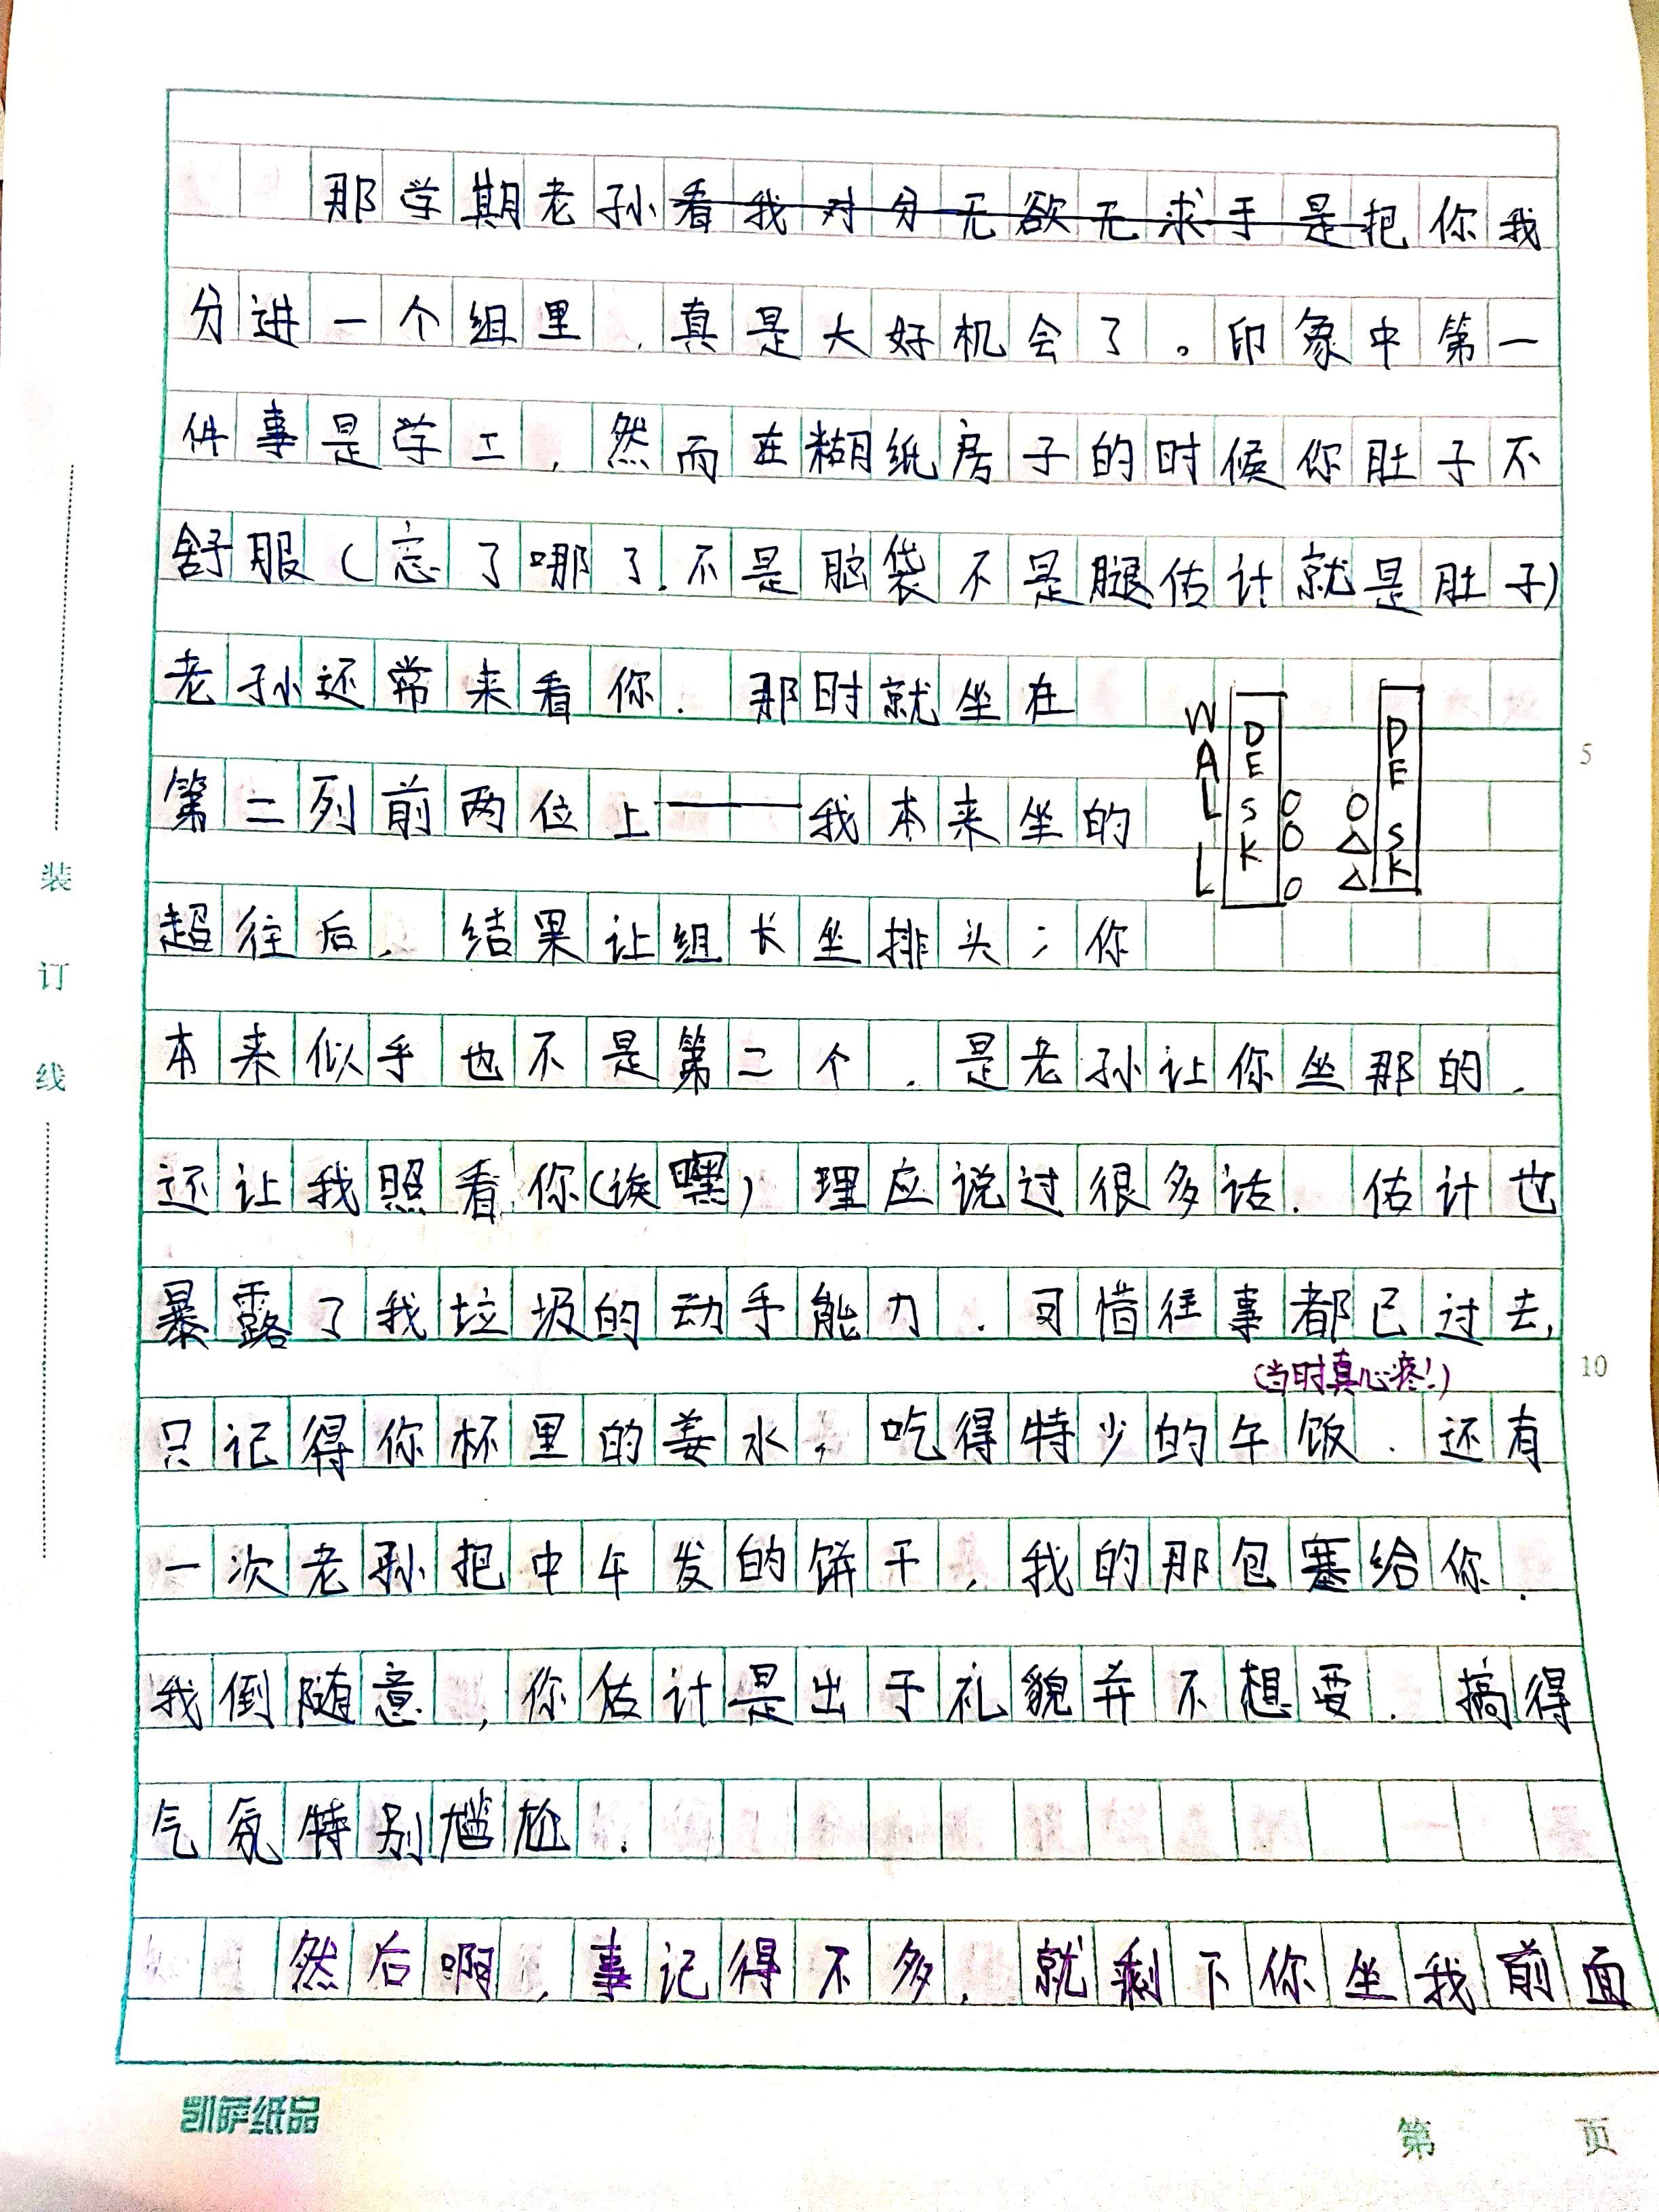 那学期老孙看我对分无欲无求于是把你我
分进一个组里，真是大好机会了。印象中第一
件事是学工，然而在糊纸房子的时候你肚子不
舒服（忘了哪了.不是脑袋不是腿估计就是肚子）
老孙还常来看你.那时就坐在
WALL DESK DESK
第二列前两位上——我本来坐的
超往后，结果让组长坐排头；你
本来似乎也不是第二个.是老孙让你坐那的.
还让我照看你（诶嘿）理应说过很多话.估计也
暴露了我垃圾的动手能力.可惜往事都已过去，
（当时真心疼！）
只记得你杯里的姜水，吃得特少的午饭.还有
一次老孙把中午发的饼干，我的那包塞给你.
我倒随意，你估计是出于礼貌并不想要.搞得
气氛特别尴尬.
然后啊，事记得不多，就剩下你坐我前面
装订线
5
10
凯萨纸品
第 页